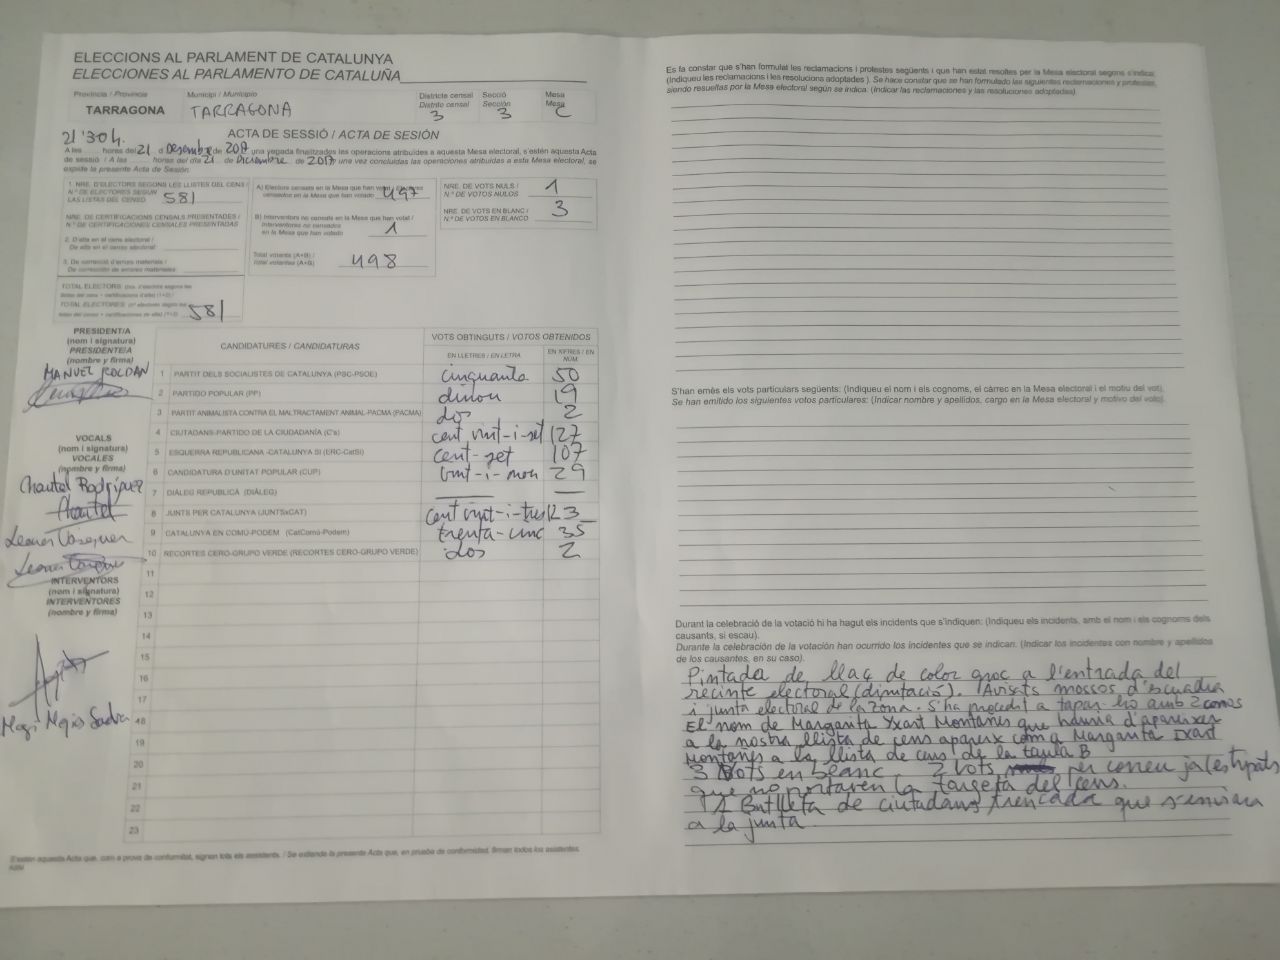 ELECCIONS AL PARLAMENT DE CATALUNYA
ELECCIONES AL PARLAMENTO DE CATALUÑA
Província / Provincia
TARRAGONA
Municipi / Municipio
TARRAGONA
Districte censal
Distrito censal
3
Secció
Sección
3
Mesa
Mesa
C
ACTA DE SESSIÓ / ACTA DE SESIÓN
21'30 h.
A les hores del 21 d Desembre de 2017 una vegada finalitzades les operacions atribuïdes a aquesta Mesa electoral, s'estén aquesta Acta
de sessió / A las horas del día 21 de Diciembre de 2017 una vez concluidas las operaciones atribuidas a esta Mesa electoral, se
expide la presente Acta de Sesión
1. NRE. D'ELECTORS SEGONS LES LLISTES DEL CENS /
N.º DE ELECTORES SEGÚN
LAS LISTAS DEL CENSO 581
NRE. DE CERTIFICACIONS CENSALS PRESENTADES /
N.º DE CERTIFICACIONES CENSALES PRESENTADAS
2. D'alta en el cens electoral /
De alta en el censo electoral
3. De correcció d'errors materials /
De corrección de errores materiales
TOTAL ELECTORS
TOTAL ELECTORES 581
A) Electors censats en la Mesa que han votat / Electores
censados en la Mesa que han votado 497
B) Interventors no censats en la Mesa que han votat /
Interventores no censados
en la Mesa que han votado 1
Total votants (A+B) /
Total votantes (A+B) 498
NRE. DE VOTS NULS /
N.º DE VOTOS NULOS 1
NRE. DE VOTS EN BLANC /
N.º DE VOTOS EN BLANCO 3
PRESIDENT/A
(nom i signatura)
PRESIDENTE/A
(nombre y firma)
MANUEL ROLDAN
VOCALS
(nom i signatura)
VOCALES
(nombre y firma)
Chantal Rodríguez
INTERVENTORS
(nom i signatura)
INTERVENTORES
(nombre y firma)
CANDIDATURES / CANDIDATURAS
VOTS OBTINGUTS / VOTOS OBTENIDOS
EN LLETRES / EN LETRA
EN XIFRES / EN NÚM.
1 PARTIT DELS SOCIALISTES DE CATALUNYA (PSC-PSOE) cinquanta 50
2 PARTIDO POPULAR (PP) dinou 19
3 PARTIT ANIMALISTA CONTRA EL MALTRACTAMENT ANIMAL-PACMA (PACMA) dos 2
4 CIUTADANS-PARTIDO DE LA CIUDADANÍA (C's) cent vint-i-set 127
5 ESQUERRA REPUBLICANA -CATALUNYA SÍ (ERC-CatSí) cent-set 107
6 CANDIDATURA D'UNITAT POPULAR (CUP) vint-i-nou 29
7 DIÀLEG REPUBLICÀ (DIÀLEG) — —
8 JUNTS PER CATALUNYA (JUNTSxCAT) cent vint-i-tres 123
9 CATALUNYA EN COMÚ-PODEM (CatComú-Podem) trenta-cinc 35
10 RECORTES CERO-GRUPO VERDE (RECORTES CERO-GRUPO VERDE) dos 2
11
12
13
14
15
16
17
18
19
20
21
22
23
S'estén aquesta Acta que, com a prova de conformitat, signen tots els assistents. / Se extiende la presente Acta que, en prueba de conformidad, firman todos los asistentes.
Es fa constar que s'han formulat les reclamacions i protestes següents i que han estat resoltes per la Mesa electoral segons s'indica.
(Indiqueu les reclamacions i les resolucions adoptades). Se hace constar que se han formulado las siguientes reclamaciones y protestas,
siendo resueltas por la Mesa electoral según se indica. (Indicar las reclamaciones y las resoluciones adoptadas).
S'han emès els vots particulars següents: (Indiqueu el nom i els cognoms, el càrrec en la Mesa electoral i el motiu del vot).
Se han emitido los siguientes votos particulares: (Indicar nombre y apellidos, cargo en la Mesa electoral y motivo del voto).
Durant la celebració de la votació hi ha hagut els incidents que s'indiquen: (Indiqueu els incidents, amb el nom i els cognoms dels
causants, si escau).
Durante la celebración de la votación han ocurrido los incidentes que se indican: (Indicar los incidentes con nombre y apellidos
de los causantes, en su caso).
Pintada de llaç de color groc a l'entrada del
recinte electoral (diputació). Avisats mossos d'escuadra
i junta electoral de la zona. S'ha procedit a tapar-ho amb 2 conos
El nom de Margarita Yxart Montañés que hauria d'apareixer
a la nostra llista de cens apareix com a Margarita Ixart
Montañés a la llista de cens de la taula B
3 Vots en blanc, 2 vots per correu ja
que no portaven la targeta del cens.
1 Butlleta de ciutadans trencada que s'enviara
a la junta